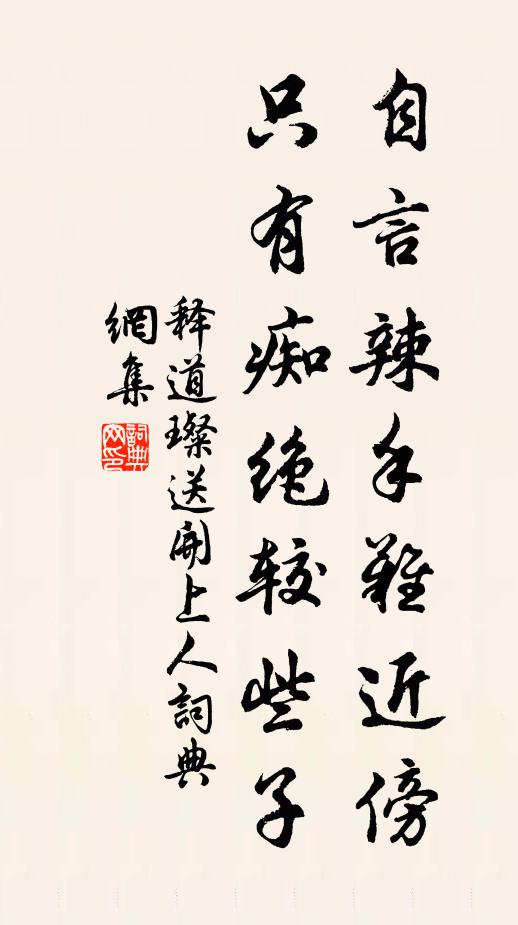 自言辣手難近傍
只有痴绝较些子
释道璨送開上人詞典
網集
詞典
网印